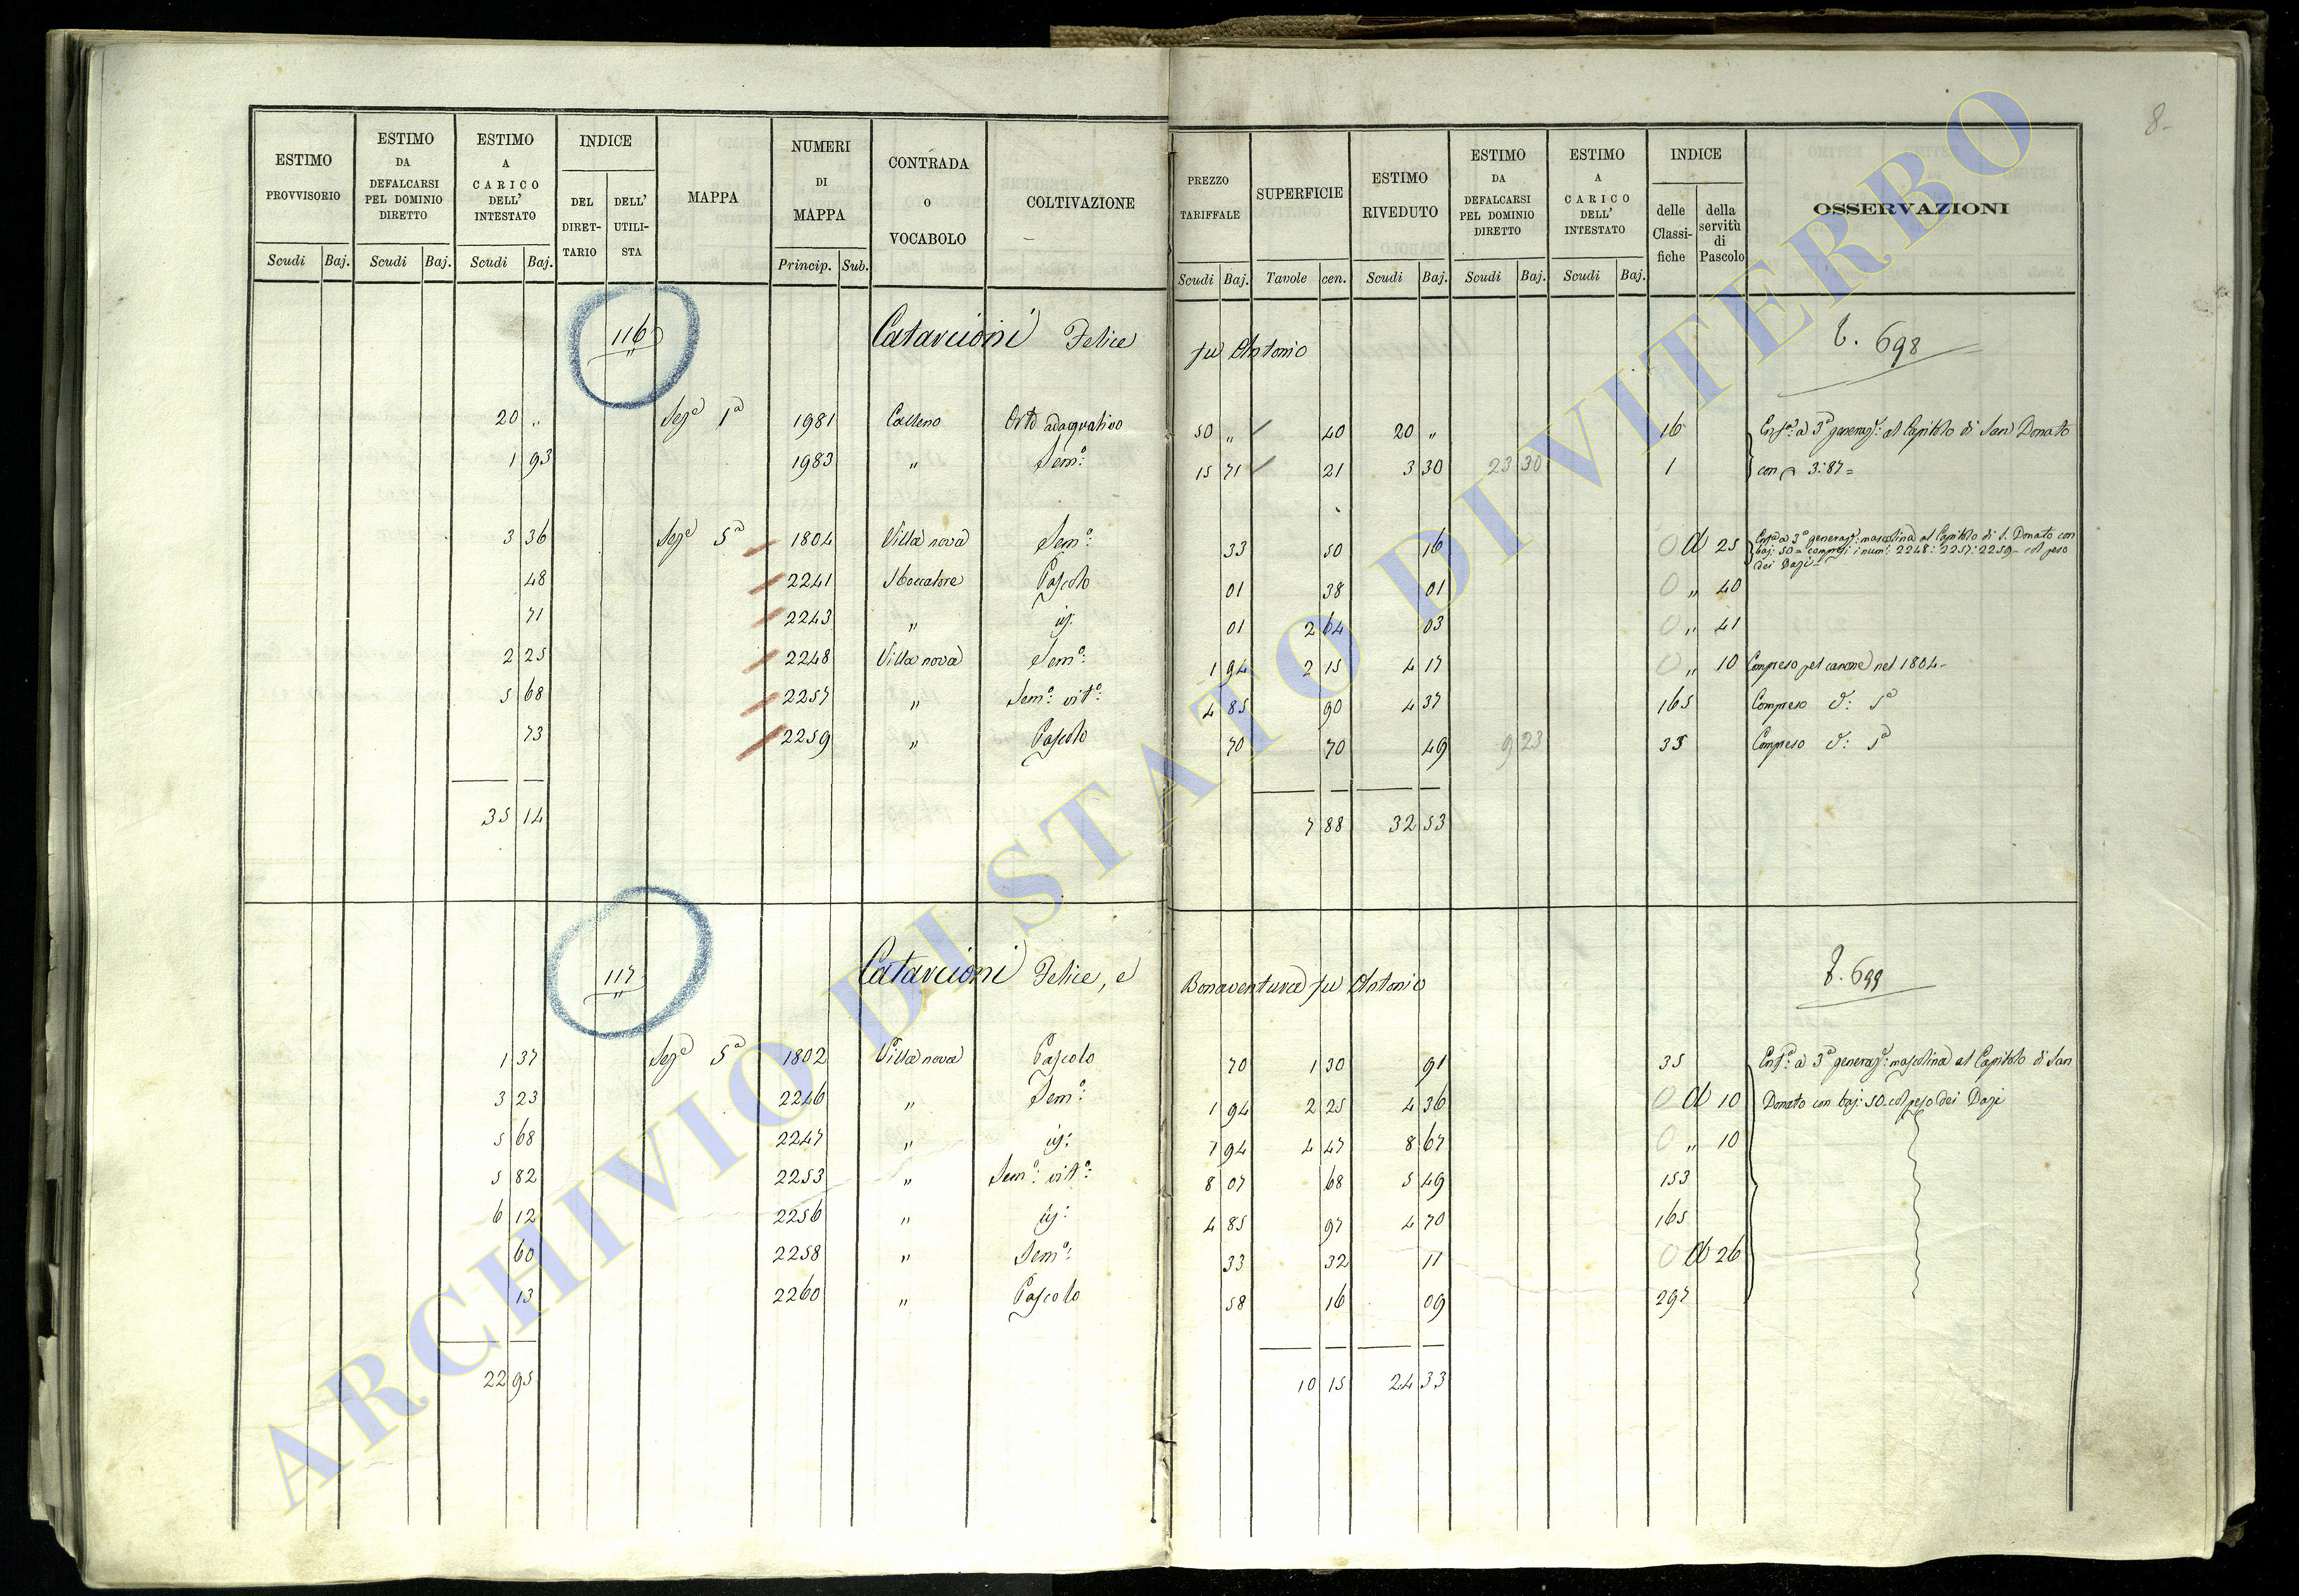 8-
ESTIMO PROVVISORIO Scudi Baj.
ESTIMO DA DEFALCARSI PEL DOMINIO DIRETTO Scudi Baj.
ESTIMO A CARICO DELL' INTESTATO Scudi Baj.
INDICE DEL DIRET-TARIO DELL' UTILI-STA
MAPPA
NUMERI DI MAPPA Princip. Sub.
CONTRADA O VOCABOLO
COLTIVAZIONE
PREZZO TARIFFALE Scudi Baj.
SUPERFICIE Tavole cen.
ESTIMO RIVEDUTO Scudi Baj.
ESTIMO DA DEFALCARSI PEL DOMINIO DIRETTO Scudi Baj.
ESTIMO A CARICO DELL' INTESTATO Scudi Baj.
INDICE delle Classi-fiche della servitù di Pascolo
OSSERVAZIONI
116 Catarcioni Felice fu Antonio 698
20 " Sez.e 1a 1981 Calleno Orto adaquativo 50 " 40 20 " 16 Enf.a a 3a generaz.e al Capitolo di San Donato
1 93 1983 " Sem.o 15 71 21 3 30 23 30 1 con 3:87=
3 36 Sez.e 5a 1804 Villa nova Sem.o 33 50 16 0 A 25 Enf.a a 3a generaz.e mascolina al Capitolo di S. Donato con
baj: 50= compresi i num.i 2248: 2257: 2259- col peso
dei Dazi-
48 2241 Sboccatore Pascolo 01 38 01 0 " 40
71 2243 " 01 2 64 03 0 " 41
2 25 2248 Villa nova Sem.o 1 94 2 15 4 17 0 " 10 Compreso pel canone nel 1804-
5 68 2257 " Sem.o vit.o 4 85 90 4 37 165 Compreso
73 2259 " Pascolo 70 70 49 9 23 35 Compreso
35 14 7 88 32 53
117 Catarcioni Felice, e Bonaventura fu Antonio 699
1 37 Sez.e 5a 1802 Villa nova Pascolo 70 1 30 91 35 Enf.a a 3a generaz.e mascolina al Capitolo di San
3 23 2246 " Sem.o 1 94 2 25 4 36 0 A 10 Donato con baj: 50 col peso dei Dazi
5 68 2247 " 1 94 4 47 8 67 0 " 10
5 82 2253 " Sem.o vitt.o 8 07 68 5 49 153
6 12 2256 " 4 85 97 4 70 165
60 2258 " Sem.o 33 32 11 0 A 26
13 2260 " Pascolo 58 16 09 297
22 95 10 15 24 33
ARCHIVIO DI STATO DI VITERBO